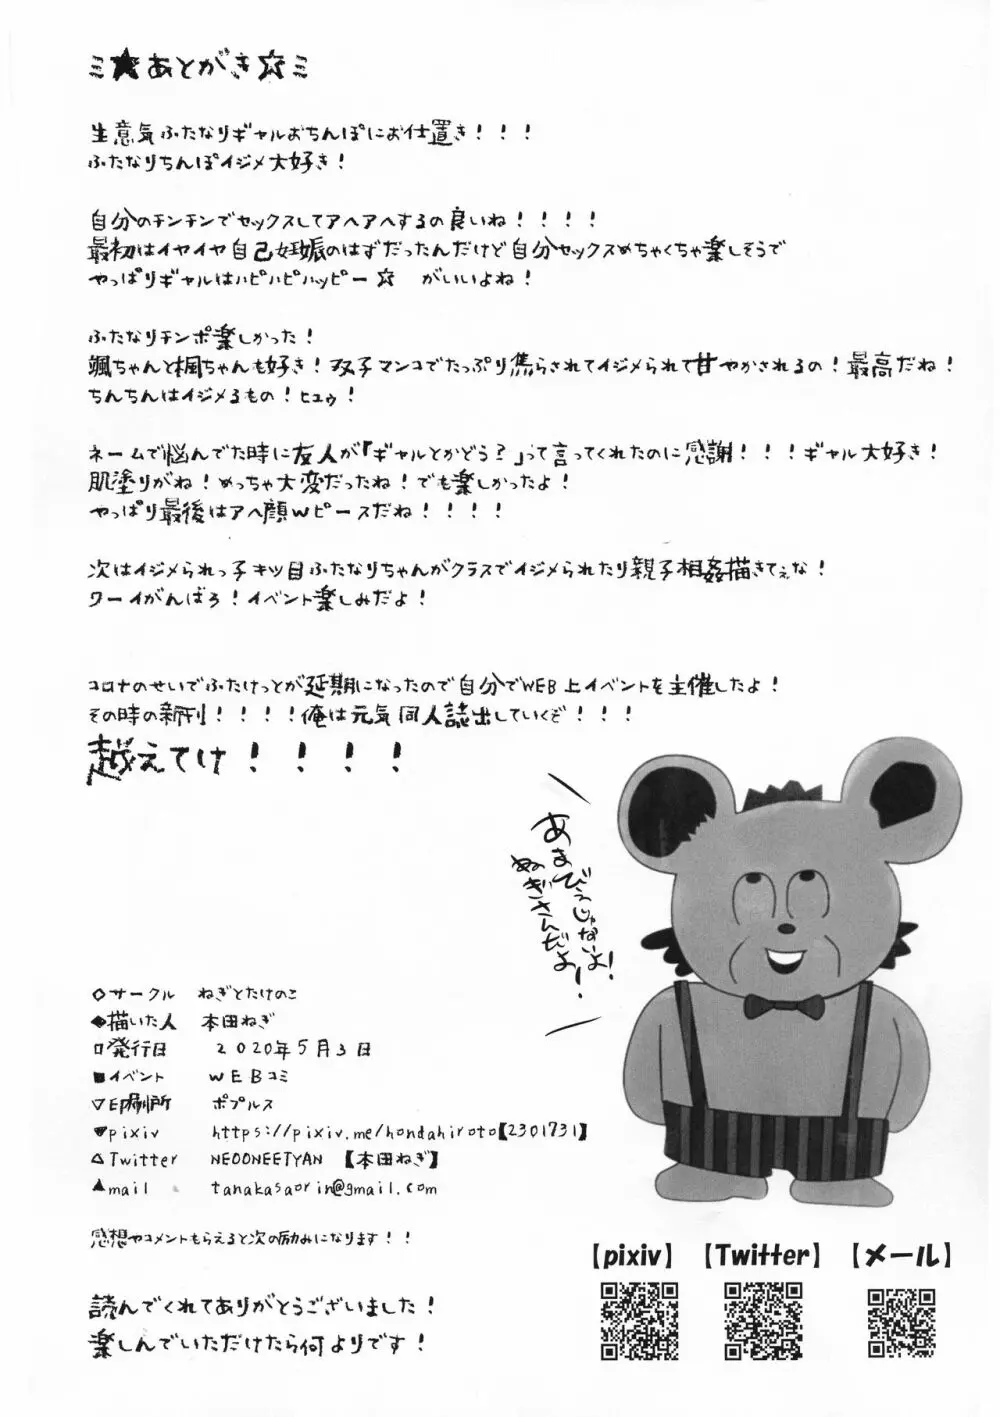 ミ★あとがき☆ミ
生意気ふたなりギャルおちんぽにお仕置き！！！
ふたなりちんぽイジメ大好き！
自分のチンチンでセックスしてアヘアヘするの良いね！！！！
最初はイヤイヤ自己妊娠のはずだったんだけど自分セックスめちゃくちゃ楽しそうで
やっぱりギャルはハピハピハッピー☆ がいいよね！
ふたなりチンポ楽しかった！
颯ちゃんと楓ちゃんも好き！双子マンコでたっぷり焦らされてイジメられて甘やかされるの！最高だね！
ちんちんはイジメるもの！ヒュゥ！
ネームで悩んでた時に友人が「ギャルとかどう？」って言ってくれたのに感謝！！！ギャル大好き！
肌塗りがね！めっちゃ大変だったね！でも楽しかったよ！
やっぱり最後はアヘ顔Wピースだね！！！！
次はイジメられっ子キツ目ふたなりちゃんがクラスでイジメられたり親子相姦描きてぇな！
ワーイがんばろ！イベント楽しみだよ！
コロナのせいでふたけっとが延期になったので自分でWEB上イベントを主催したよ！
その時の新刊！！！！俺は元気同人誌出していくぞ！！！
越えてけ！！！！
あまびえじゃないよ！
ぬぎさんだよ！
◇サークル ねぎとたけのこ
◆描いた人 本田ねぎ
□発行日 2020年5月3日
■イベント WEBコミ
▽印刷所 ポプルス
▼pixiv https://pixiv.me/hondahiroto【2301731】
△Twitter NEOONEETYAN 【本田ねぎ】
▲mail tanakasaorin@gmail.com
感想やコメントもらえると次の励みになります！！
【pixiv】 【Twitter】 【メール】
読んでくれてありがとうございました！
楽しんでいただけたら何よりです！